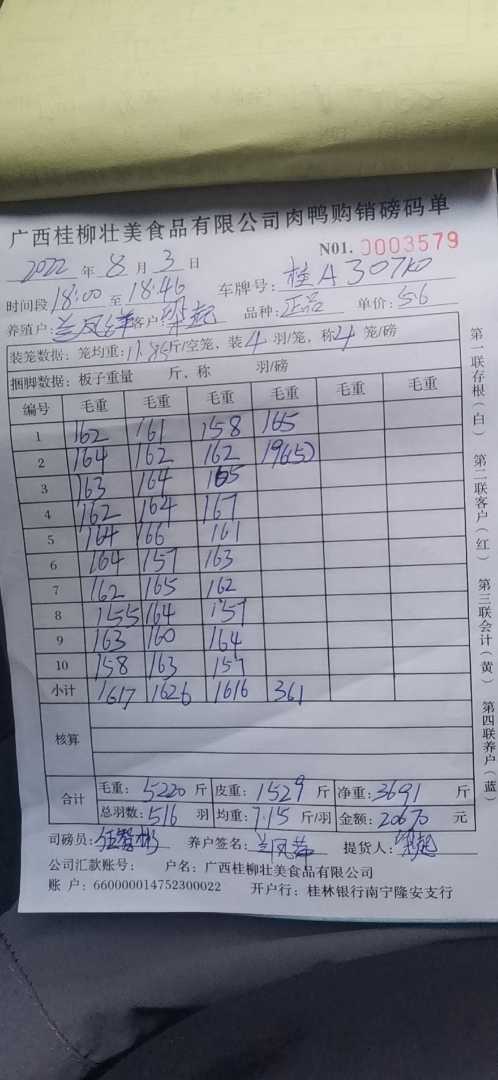 广西桂柳壮美食品有限公司肉鸭购销磅码单
2022 年 8 月 3 日 N01. 0003579
时间段 18:00 至 18:46 车牌号: 桂A307K0
养殖户: 兰风 客户: 梁起 品种: 正品 单价: 5.6
装笼数据: 笼均重: 11.85 斤/空笼, 装 4 羽/笼, 称 4 笼/磅
捆脚数据: 板子重量 斤、称 羽/磅
编号 毛重 毛重 毛重 毛重 毛重 毛重
1 162 161 158 165
2 164 162 162 196(5)
3 163 164 165
4 162 164 167
5 164 166 161
6 164 157 163
7 162 165 162
8 155 164 157
9 163 160 164
10 158 163 157
小计 1617 1626 1616 361
核算
合计 毛重: 5220 斤 皮重: 1529 斤 净重: 3691 斤
总羽数: 516 羽 均重: 7.15 斤/羽 金额: 20670 元
司磅员: 养户签名: 兰风 提货人: 梁起
公司汇款账号: 户名: 广西桂柳壮美食品有限公司
账 户: 660000014752300022 开户行: 桂林银行南宁隆安支行
第一联存根(白) 第二联客户(红) 第三联会计(黄) 第四联养户(蓝)